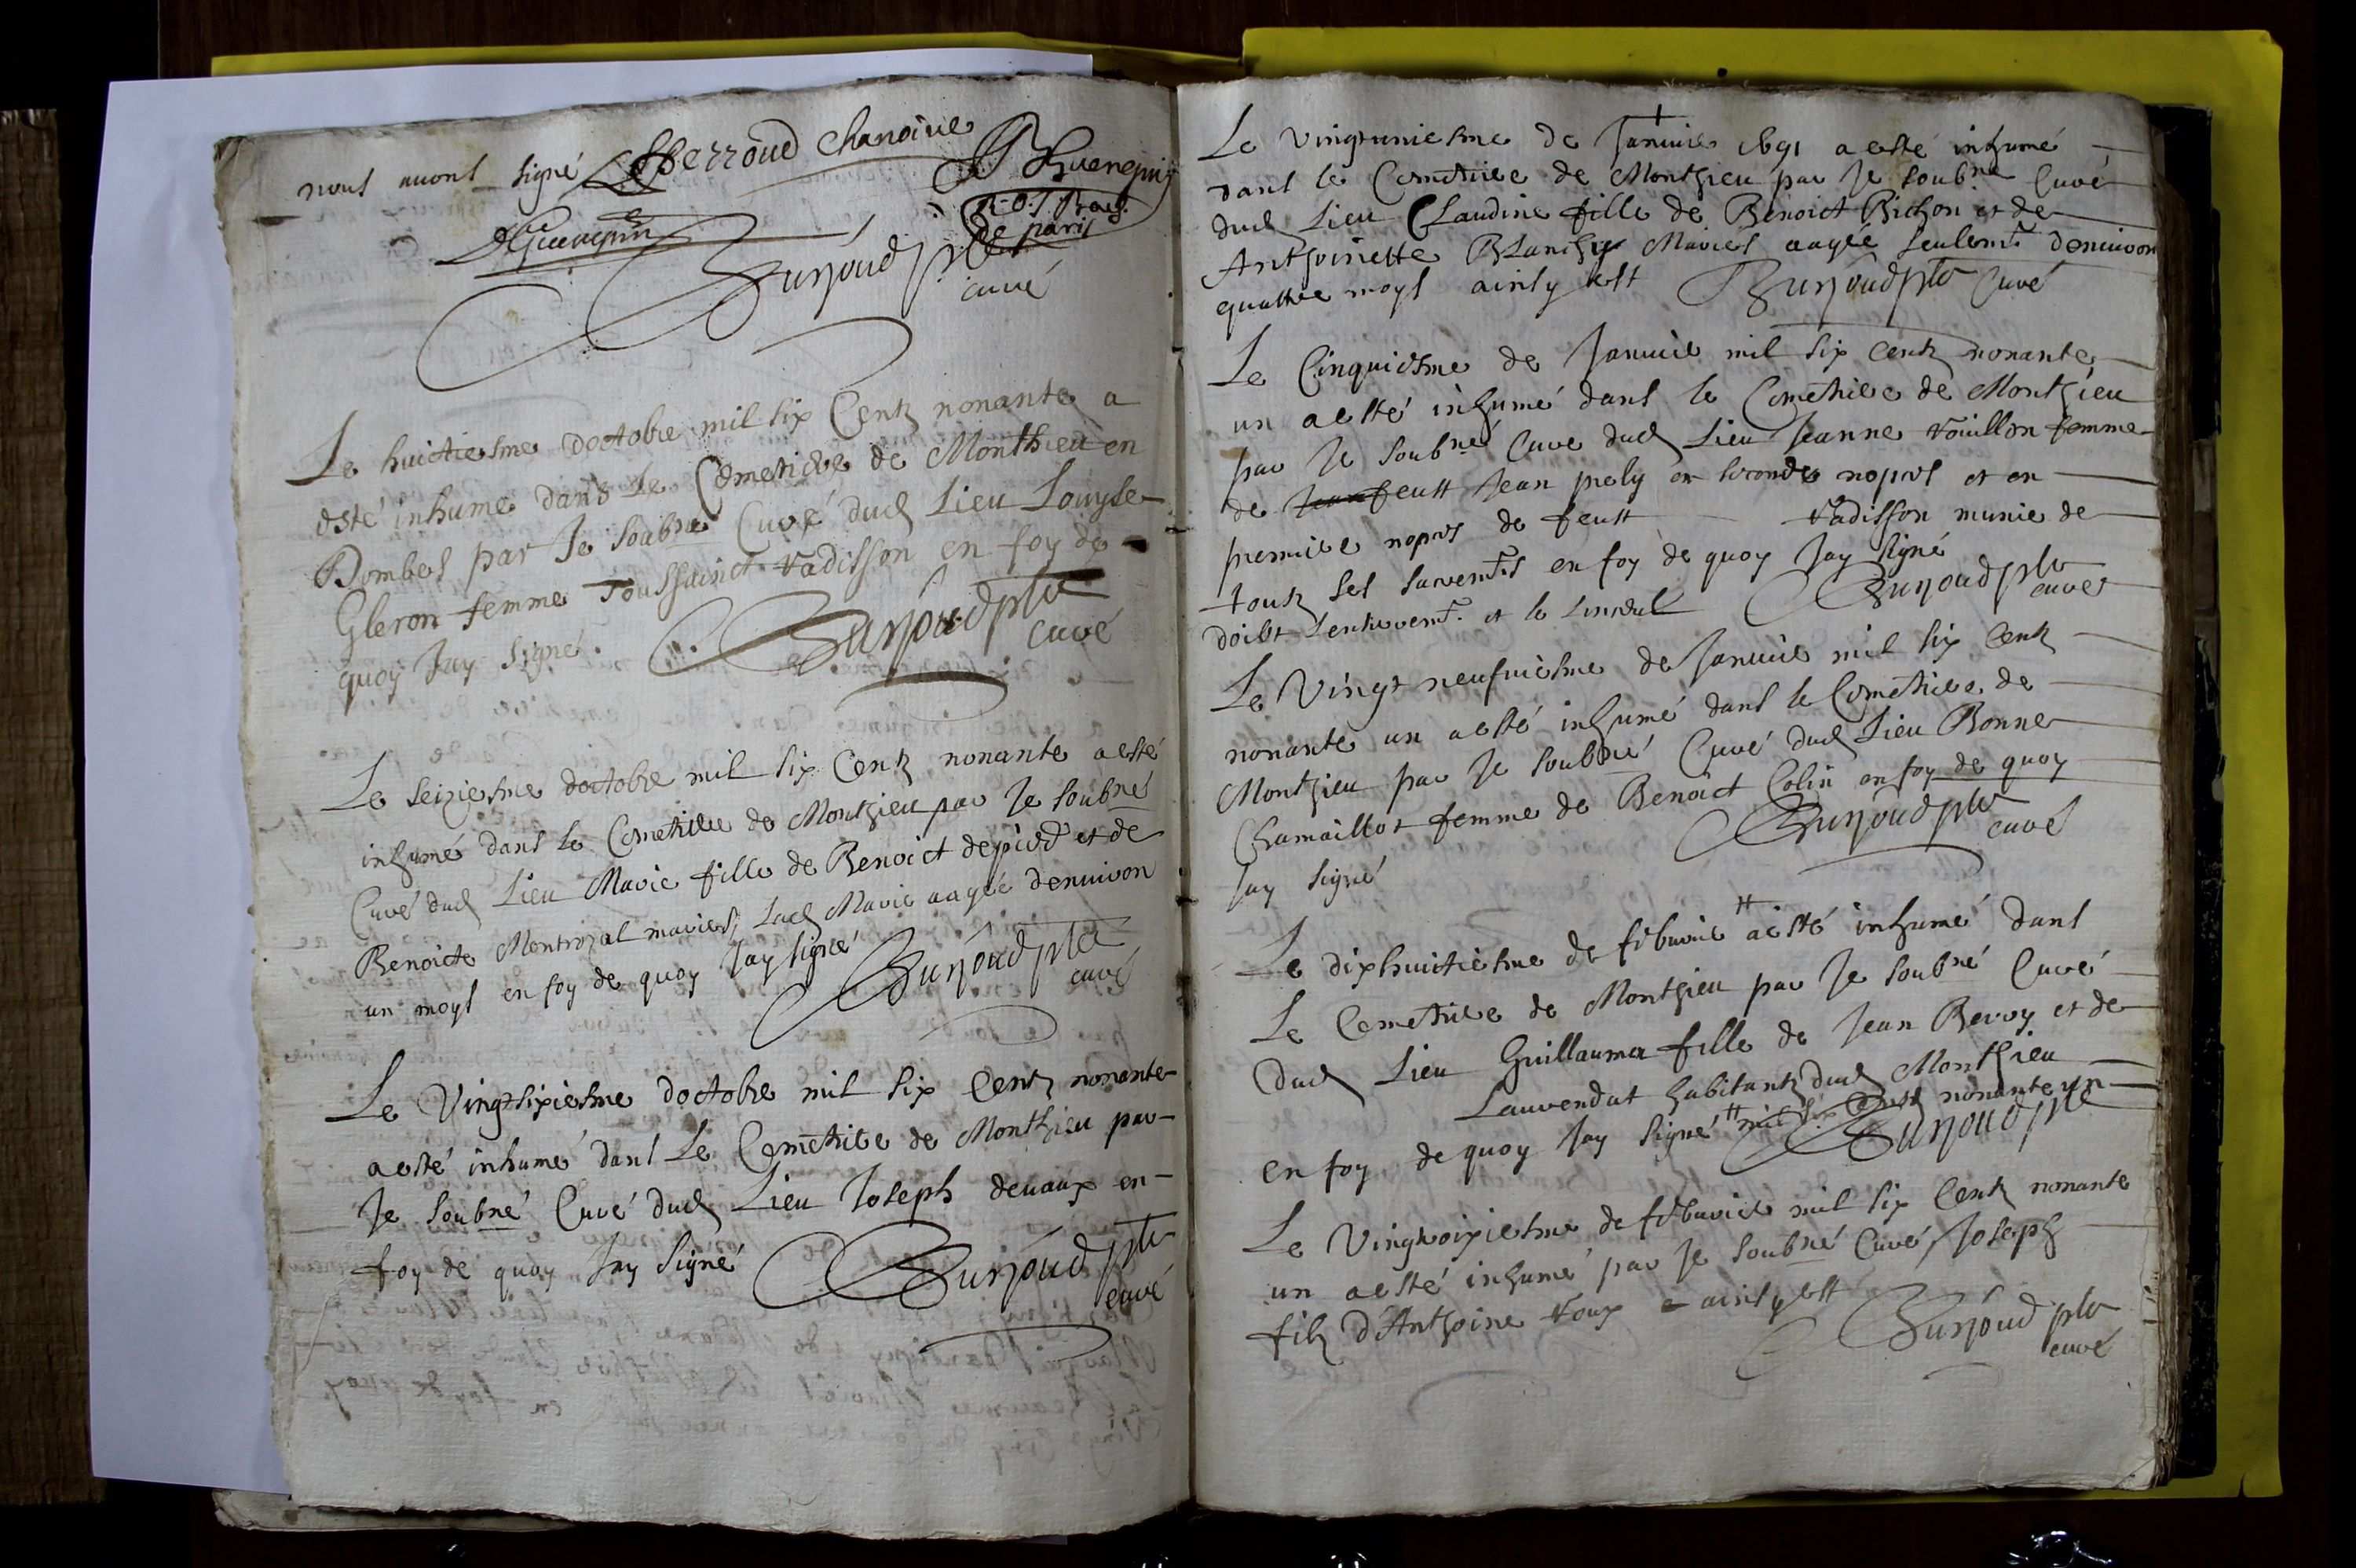 nous auons signé Perroud chanoine
Guenepin
de paris
DGuenepin
Burjoud ptre
curé
Le huictiesme doctobre mil six Centz nonante a
esté inhumé dans Le Cemetiere de Monthieu en
Dombes par Je soubné Curé dud Lieu Louyse
Gleron femme Toussainct Vadisson en foy de
quoy Jay signé. Burjoud ptre
curé
Le seiziesme doctobre mil six Centz nonante a esté
inhumé dans Le Cemetiere de Monthieu par Je soubné
Curé dud Lieu Marie fille de Benoict depierd et de
Benoicte Montrozat mariés, Lad Marie aagée denuiron
un moys en foy de quoy Jay signé Burjoud ptre
curé
Le Vingtsixiesme doctobre mil six Centz nonante
a esté inhumé dans Le Cemetiere de Monthieu par
Je soubné Curé dud Lieu Joseph deuaux en
foy de quoy Jay signé Burjoud ptre
curé
Le vingtuniesme de Januier 1691 a esté inhumé
dans le Cemetiere de Monthieu par Je soubné Curé
dud Lieu Claudine fille de Benoict Bichon et de
Anthoinette Blanchy Mariés aagée seulemt denuiron
quattre moys ainsy est Burjoud ptre Curé
Le Cinquiesme de Januier mil six centz nonante
un a esté inhumé dans le Cemetiere de Monthieu
par Je soubné Curé dud Lieu Jeanne Vouillon femme
de Jean feust Jean prely en seconde nopces et en
premiere nopces de feust Vadisson munie de
toutz ses sacremts en foy de quoy Jay signé
doibt Lenterremt. et le Linceul Burjoud ptre
curé
Le Vingt neufuiesme de Januier mil six Centz
nonante un a esté inhumé dans le Cemetiere de
Monthieu par Je soubné Curé dud Lieu Bonne
Chamaillot femme de Benoict Colin en foy de quoy
Jay signé Burjoud ptre
curé
Le dixhuitiesme de febuurier # a esté inhumé dans
Le Cemetiere de Monthieu par Je soubné Curé
dud Lieu Guillauma fille de Jean Berroy et de
Lauvendat habitantz dud Monthieu
en foy de quoy Jay signé # mil six Centz nonante un
Burjoud ptre
Le Vingtroixiesme de febuurier mil six Centz nonante
un a esté inhumé par Je soubné Curé, Joseph
filz d'Anthoine roux ainsy est
Burjoud ptre
curé